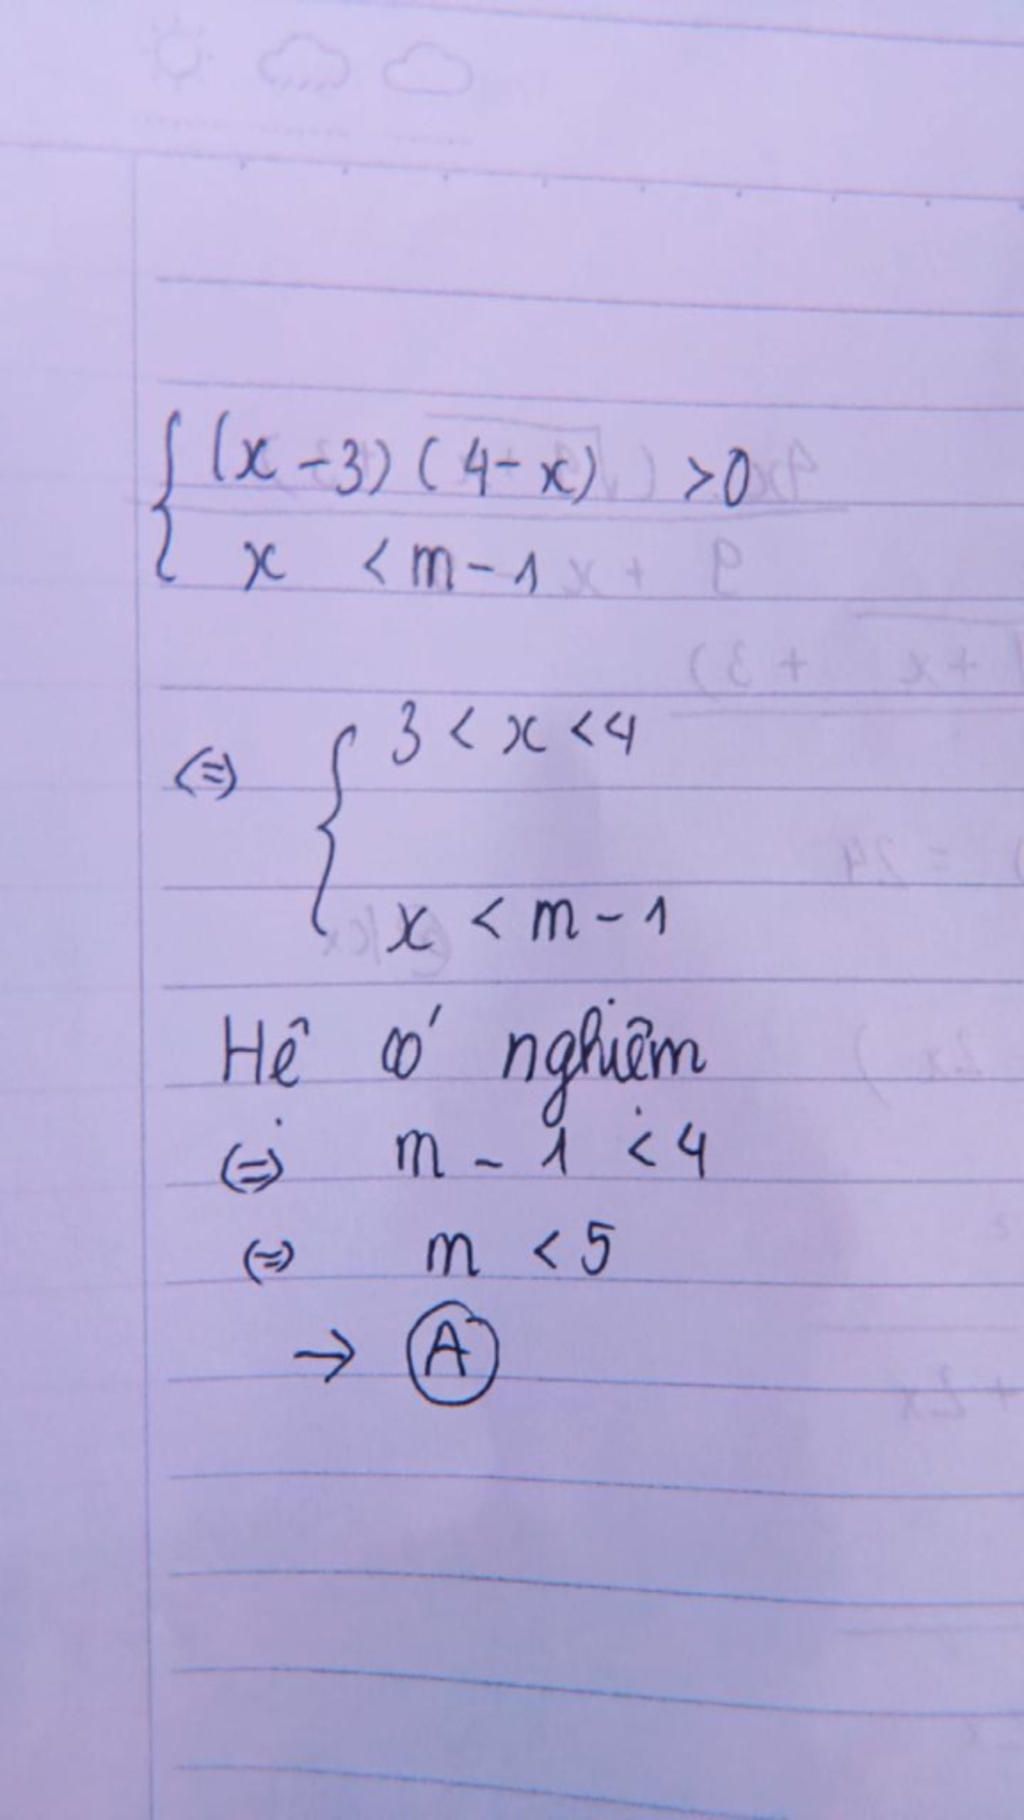 (x - 3) (4 - x) > 0
x < m - 1
<=> 3 < x < 4
x < m - 1
Hệ có nghiệm
<=> m - 1 < 4
<=> m < 5
→ A